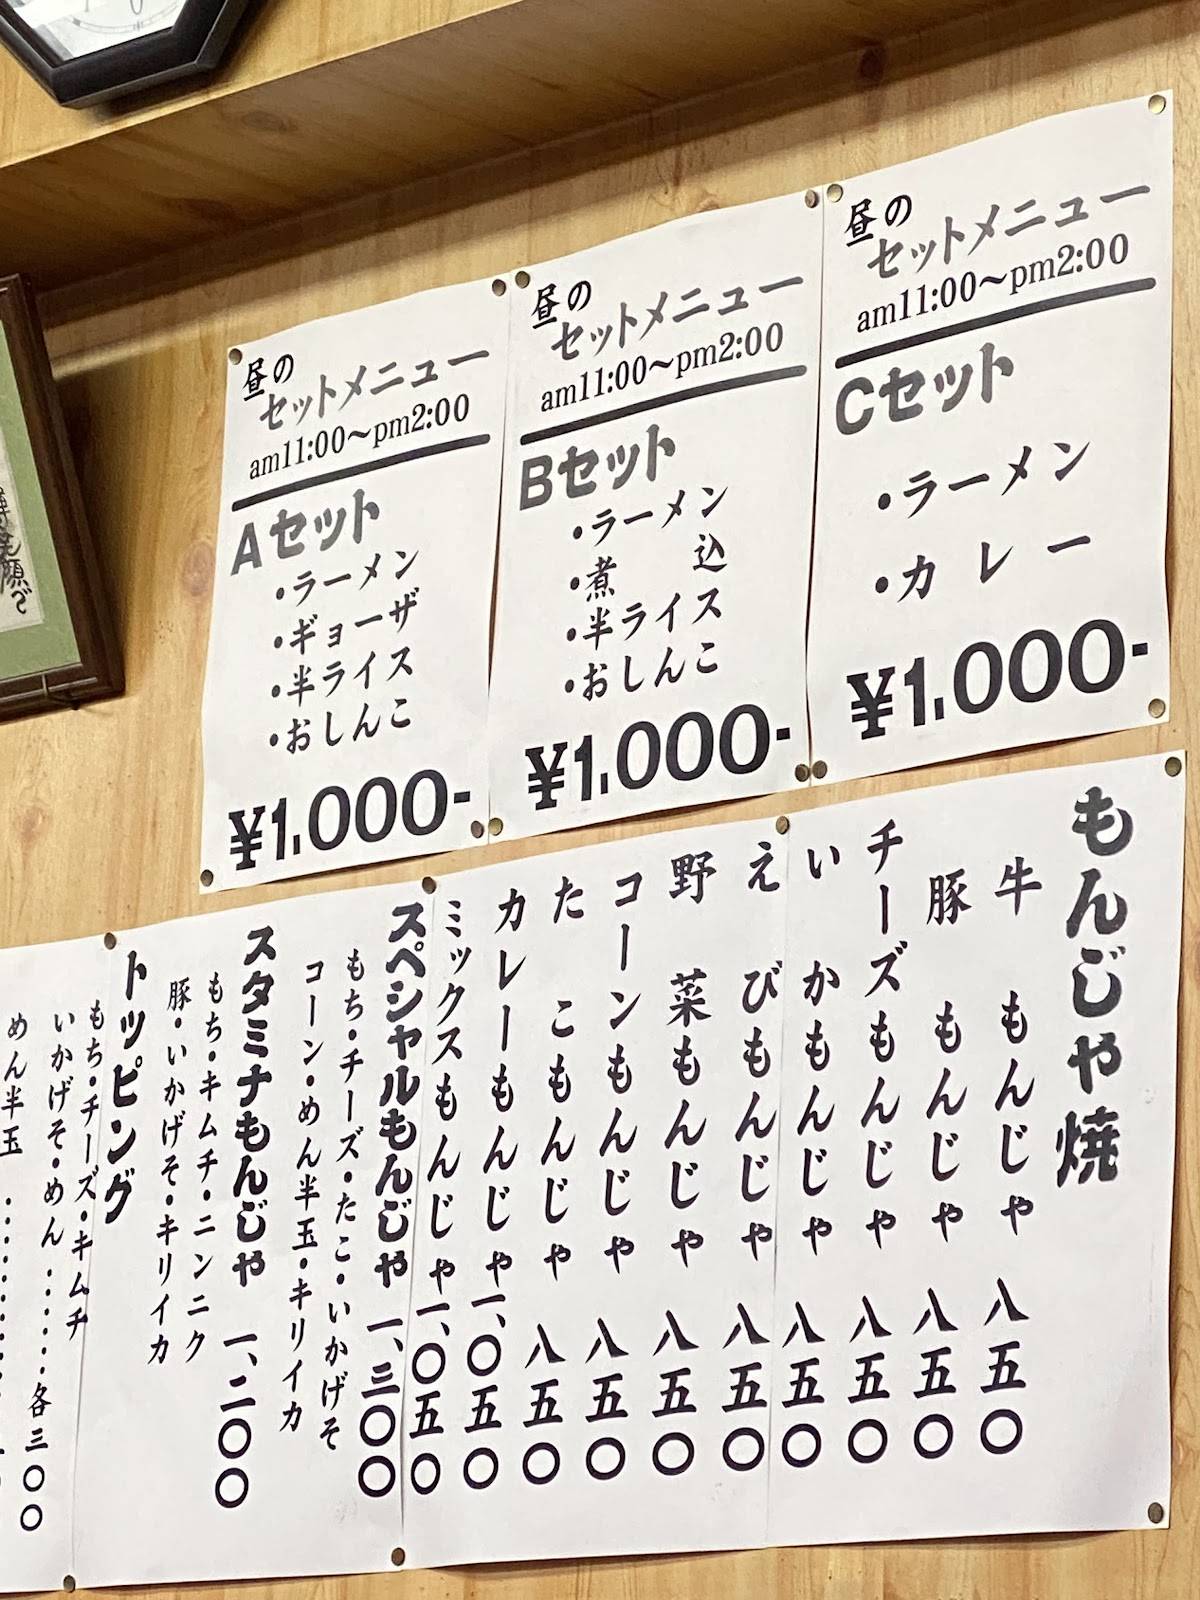 昼の
セットメニュー
am11:00〜pm2:00
Aセット
・ラーメン
・ギョーザ
・半ライス
・おしんこ
¥1,000-
昼の
セットメニュー
am11:00〜pm2:00
Bセット
・ラーメン
・煮込
・半ライス
・おしんこ
¥1,000-
昼の
セットメニュー
am11:00〜pm2:00
Cセット
・ラーメン
・カレー
¥1,000-
もんじゃ焼
牛もんじゃ 八五〇
豚もんじゃ 八五〇
チーズもんじゃ 八五〇
いかもんじゃ 八五〇
えびもんじゃ 八五〇
野菜もんじゃ 八五〇
コーンもんじゃ 八五〇
たこもんじゃ 八五〇
カレーもんじゃ 一、〇五〇
ミックスもんじゃ 一、〇五〇
スペシャルもんじゃ 一、三〇〇
もち・チーズ・たこ・いかげそ
コーン・めん半玉・キリイカ
スタミナもんじゃ 一、二〇〇
もち・キムチ・ニンニク
豚・いかげそ・キリイカ
トッピング
もち・チーズ・キムチ
いかげそ・めん ‥‥‥各三〇〇
めん半玉 ‥‥‥‥
笑顔で